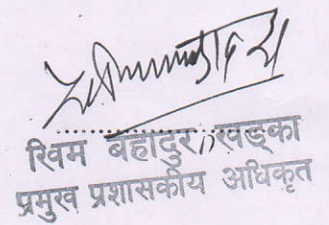 खिम बहादुर खड्का
प्रमुख प्रशासकीय अधिकृत